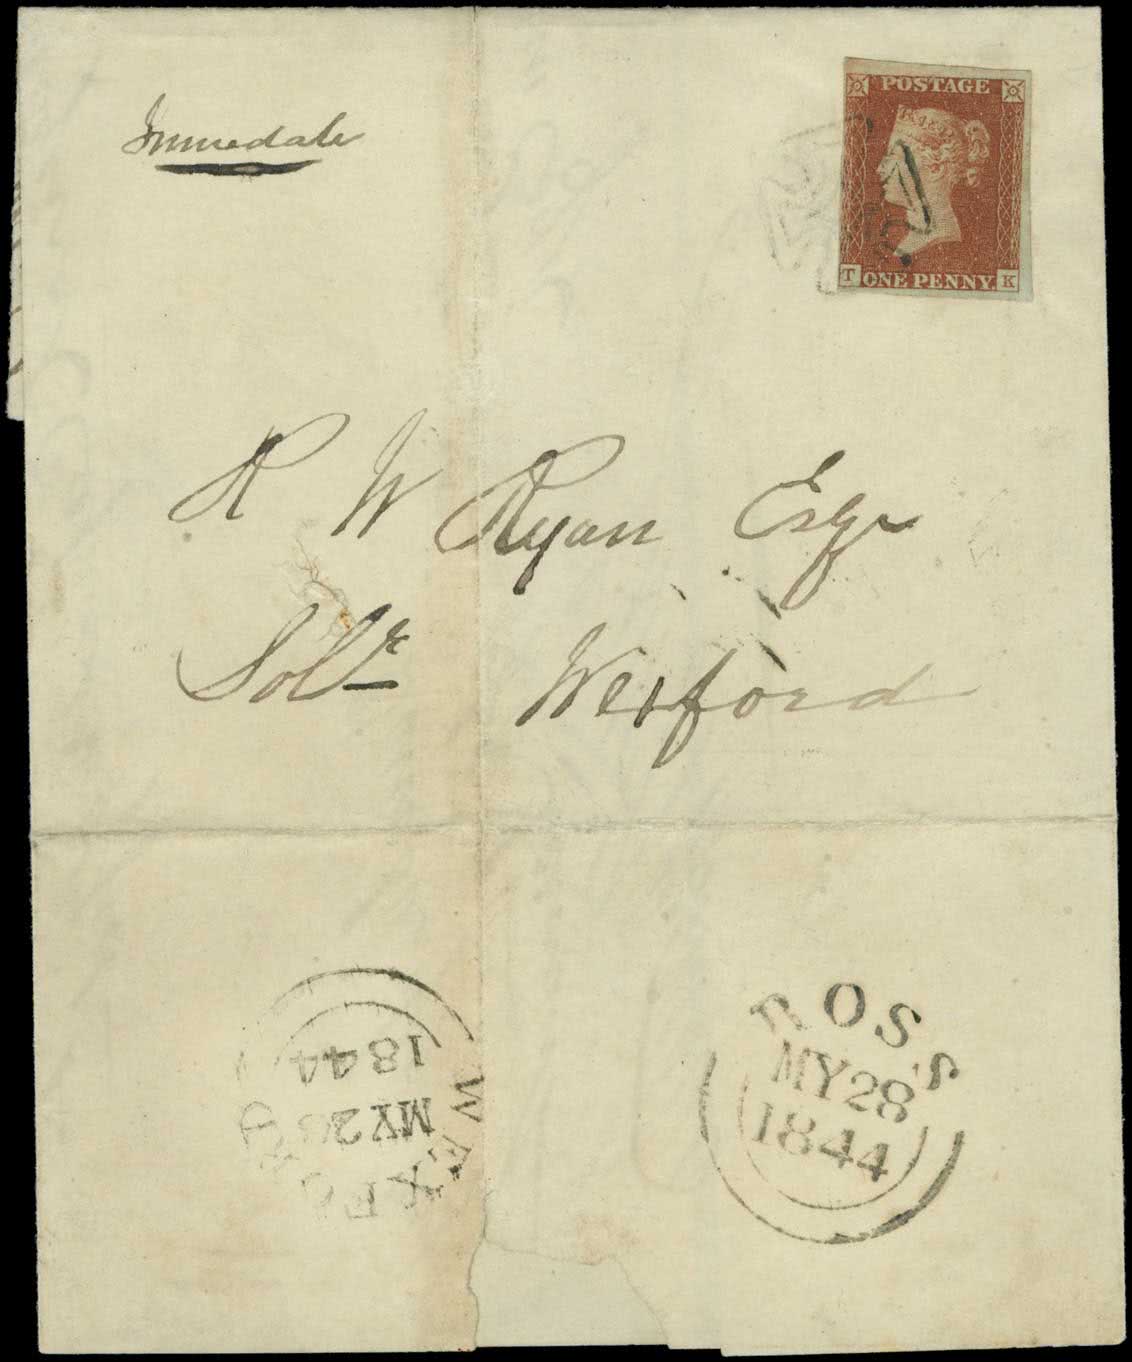 Immediate
POSTAGE
T ONE PENNY K
R W Ryan Esqr
Solr
Wexford
1844
MY 28
WEXFORD
ROSS
MY 28
1844